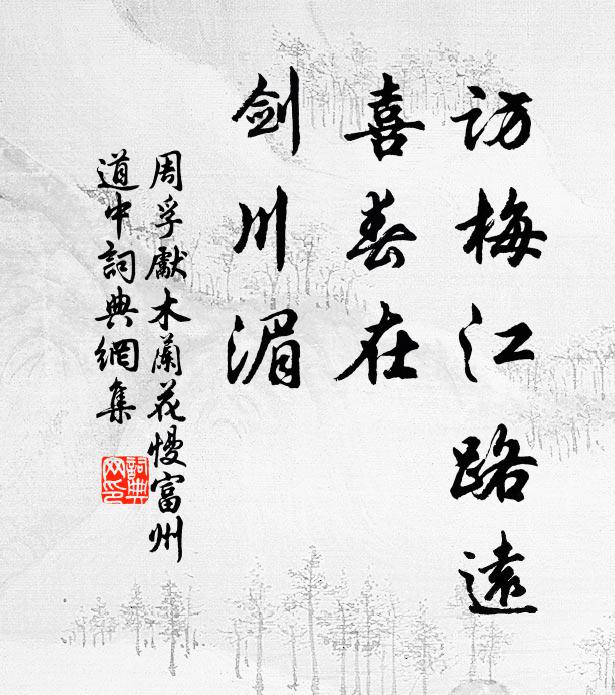 访梅江路遠
喜春在
剑川湄
周孚獻木蘭花慢富州
道中詞典網集
詞典
网印